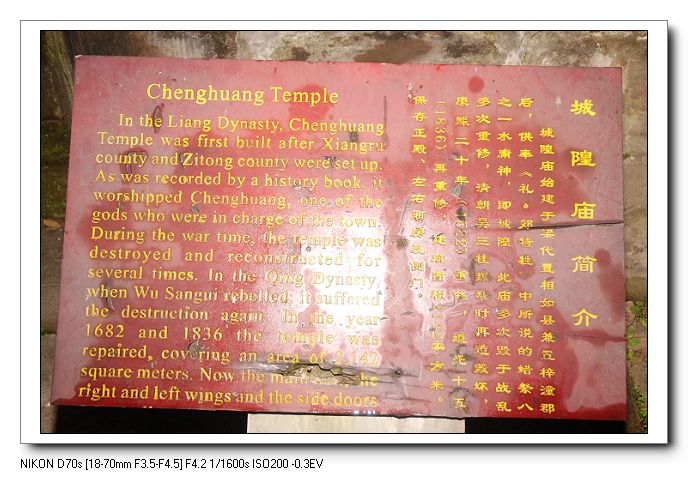 Chenghuang Temple
In the Liang Dynasty, Chenghuang
Temple was first built after Xiangru
county and Zitong county were set up.
As was recorded by a history book, it
worshipped Chenghuang, one of the
gods who were in charge of the town.
During the war time, the temple was
destroyed and reconstructed for
several times. In the Qing Dynasty,
when Wu Sangui rebelled, it suffered
the destruction again. In the year
1682 and 1836 the temple was
repaired, covering an area of 2,142
square meters. Now the main the
right and left wings and the side doors
城隍庙简介
城隍庙始建于梁代置相如县兼立梓潼郡
后，供奉《礼。郊特牲》中所说的蜡祭八
之一水庸神，即城隍。此庙多次毁于战乱
多次重修，清朝吴三桂叛乱时再遭毁坏，
康熙二十年（1682）重修，道光十五
（1836）再重修，建筑面积 平方米。
保存正殿、左右厢房及侧门。
NIKON D70s [18-70mm F3.5-F4.5] F4.2 1/1600s ISO200 -0.3EV